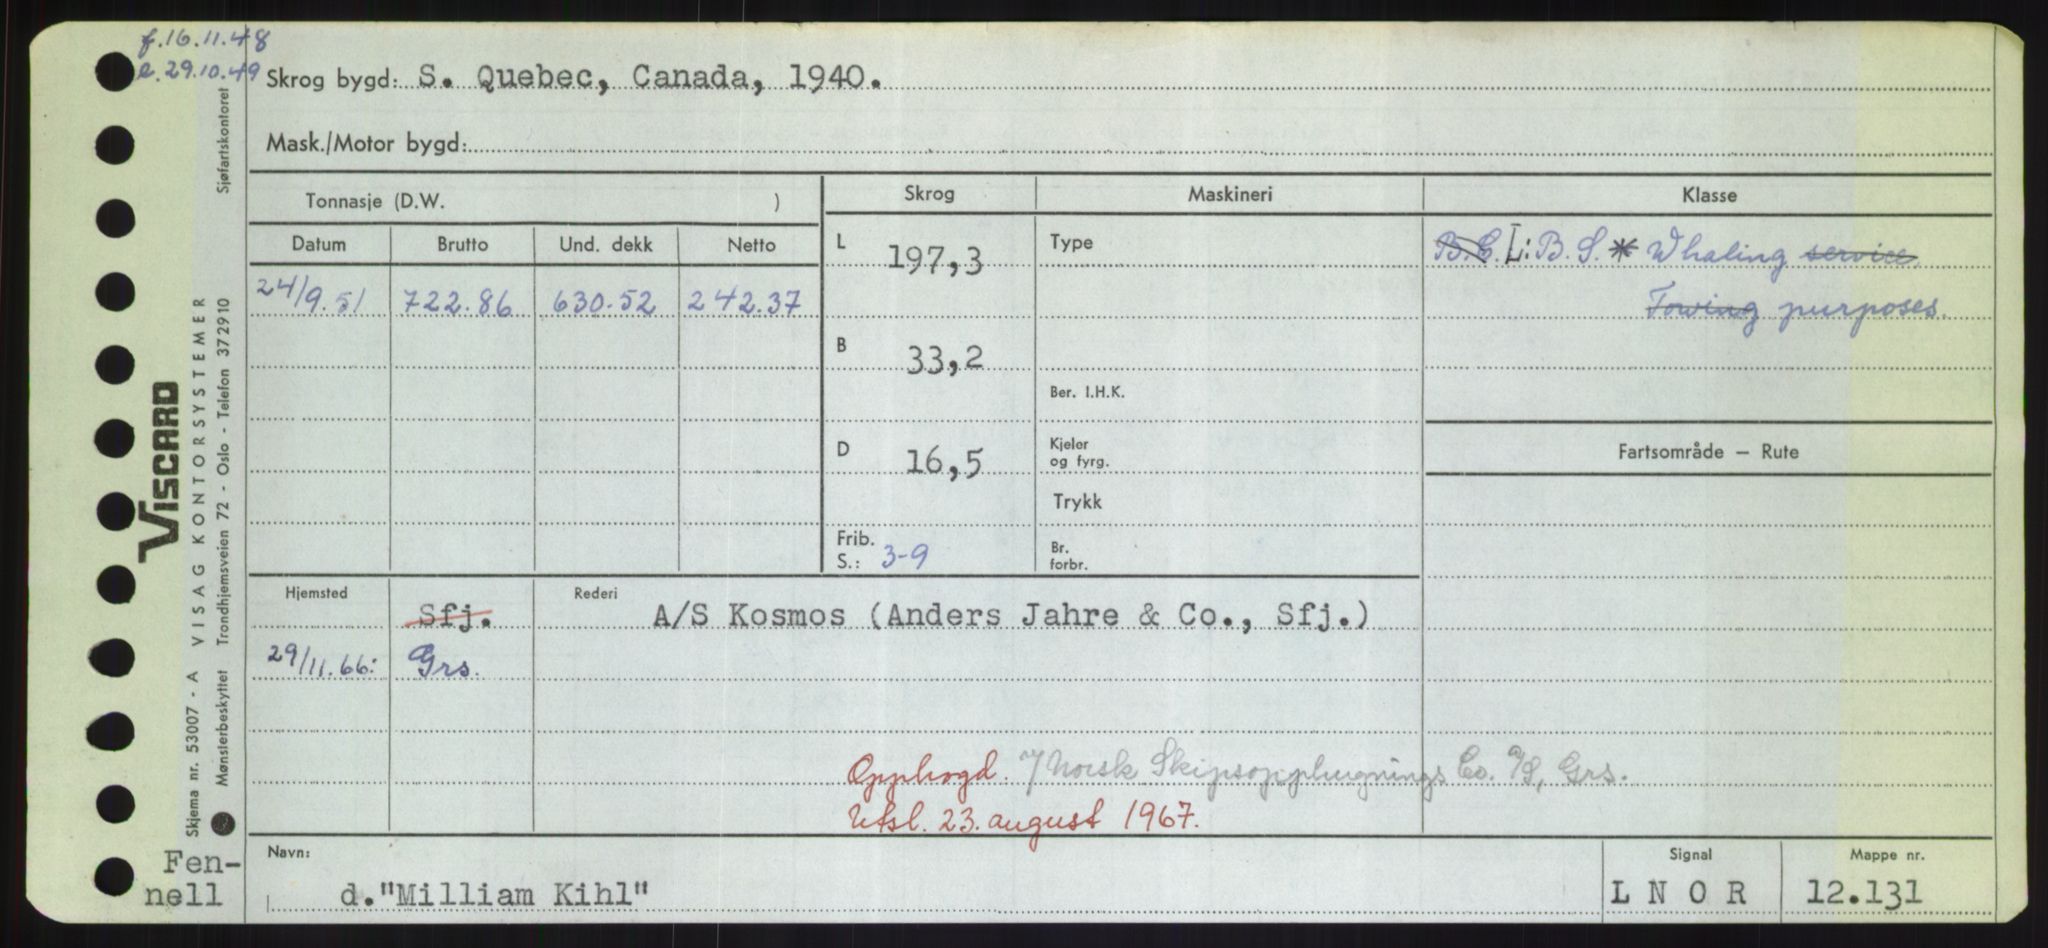 f.16.11.48
e.29.10.49
Skrog bygd: S. Quebec, Canada, 1940.
Mask./Motor bygd:
Tonnasje (D.W. )
Skrog
Maskineri
Klasse
Datum Brutto Und. dekk Netto
24/9.51 722.86 630.52 242.37
L 197,3
B 33,2
D 16,5
Frib. S.: 3-9
Type
Ber. I.H.K.
Kjeler og fyrg.
Trykk
Br. forbr.
B.C. L: B. S. * Whaling service
Towing purposes.
Fartsområde – Rute
Hjemsted Rederi
Sfj. A/S Kosmos (Anders Jahre & Co., Sfj.)
29/11.66: Grs.
Opphogd. Norsk Skipsopphugnings Co. A/S, Grs.
Utsl. 23. august 1967.
Navn: Signal Mappe nr.
d."Milliam Kihl" L N O R 12.131
Fen-
nell
Sjøfartskontoret
VISCARD
VISAG KONTORSYSTEMER
Trondhjemsveien 72 - Oslo - Telefon 372910
Skjema nr. 53007 - A
Mønsterbeskyttet